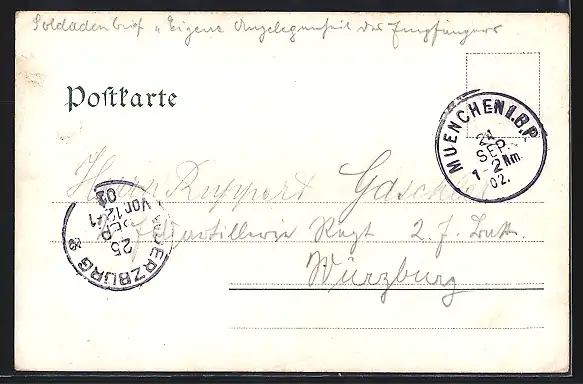 Soldadenbrief „Eigene Angelegenheit des Empfängers
Postkarte
MUENCHEN 1. B.P.
24
SEP.
1-2 Nm.
02.
Herrn Ruppert
Feldartillerie Regt 2. F. Batt.
Würzburg
WUERZBURG
25
SEP
Vor 12-1
02